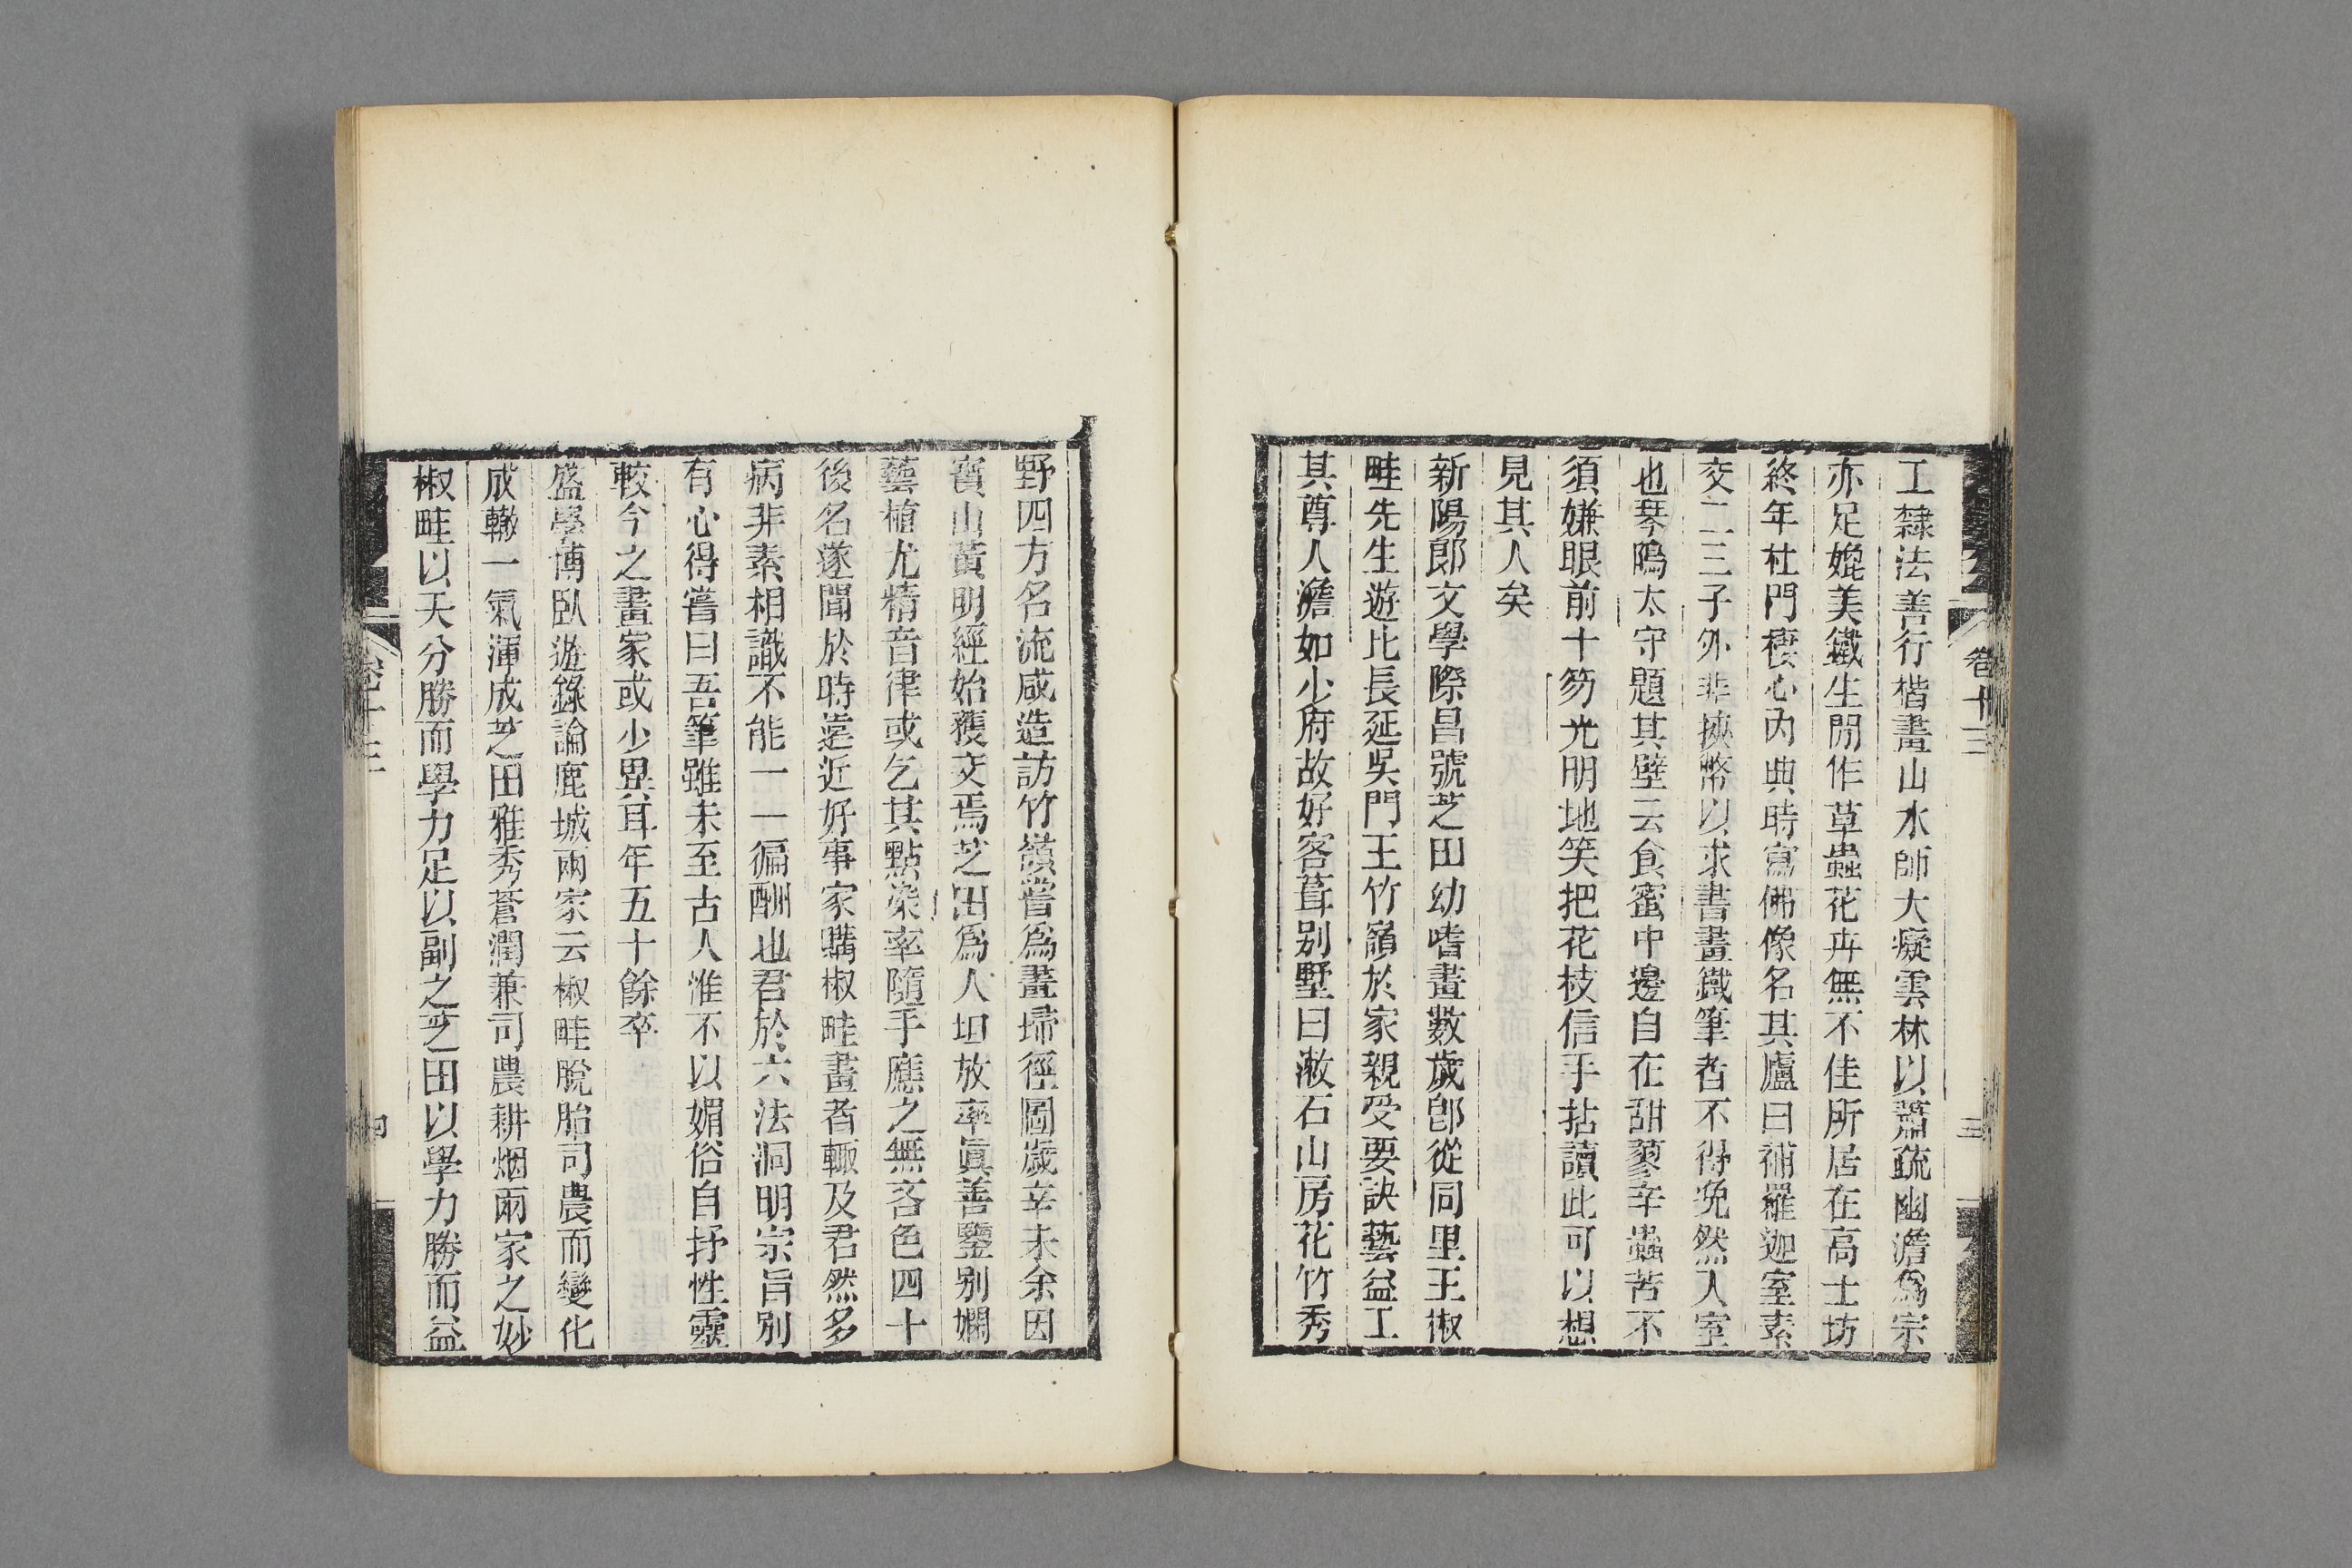 工隸法善行楷畫山水師大癡雲林以蕭疏幽澹爲宗
亦足媲美鐵生閒作草蟲花卉無不佳所居在高士坊
終年杜門棲心內典時寫佛像名其廬曰補羅迦室素
交二三子外非挾幣以求書畫鐵筆者不得免然入室
也琴隝太守題其壁云食蜜中邊自在甜蓼辛蟲苦不
須嫌眼前十笏光明地笑把花枝信手拈讀此可以想
見其人矣
新陽郞文學際昌號芝田幼嗜畫數歲卽從同里王椒
畦先生遊比長延吳門王竹嶺於家親受要訣藝益工
其尊人澹如少府故好客葺別墅曰漱石山房花竹秀
卷十三
三
野四方名流咸造訪竹嶺嘗爲畫埽徑圖歲辛未余因
寶山黃明經始獲交焉芝田爲人坦放率眞善鑒別嫻
藝植尤精音律或乞其點染率隨手應之無吝色四十
後名遂聞於時遠近好事家購椒畦畫者輒及君然多
病非素相識不能一一徧酬也君於六法洞明宗旨別
有心得嘗曰吾筆雖未至古人惟不以媚俗自抒性靈
較今之畫家或少異耳年五十餘卒
盛學博臥遊錄論鹿城兩家云椒畦脫胎司農而變化
成轍一氣渾成芝田雅秀蒼潤兼司農耕烟兩家之妙
椒畦以天分勝而學力足以副之芝田以學力勝而益
卷十三
四